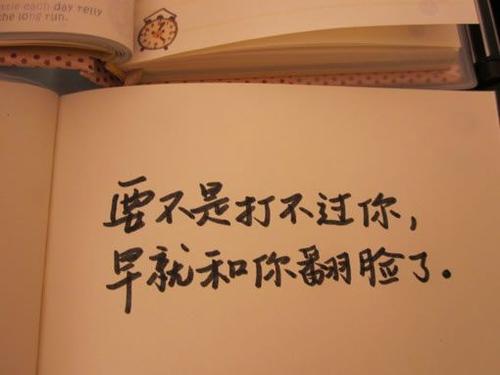 each day relly
the long run.
要不是打不过你，
早就和你翻脸了.